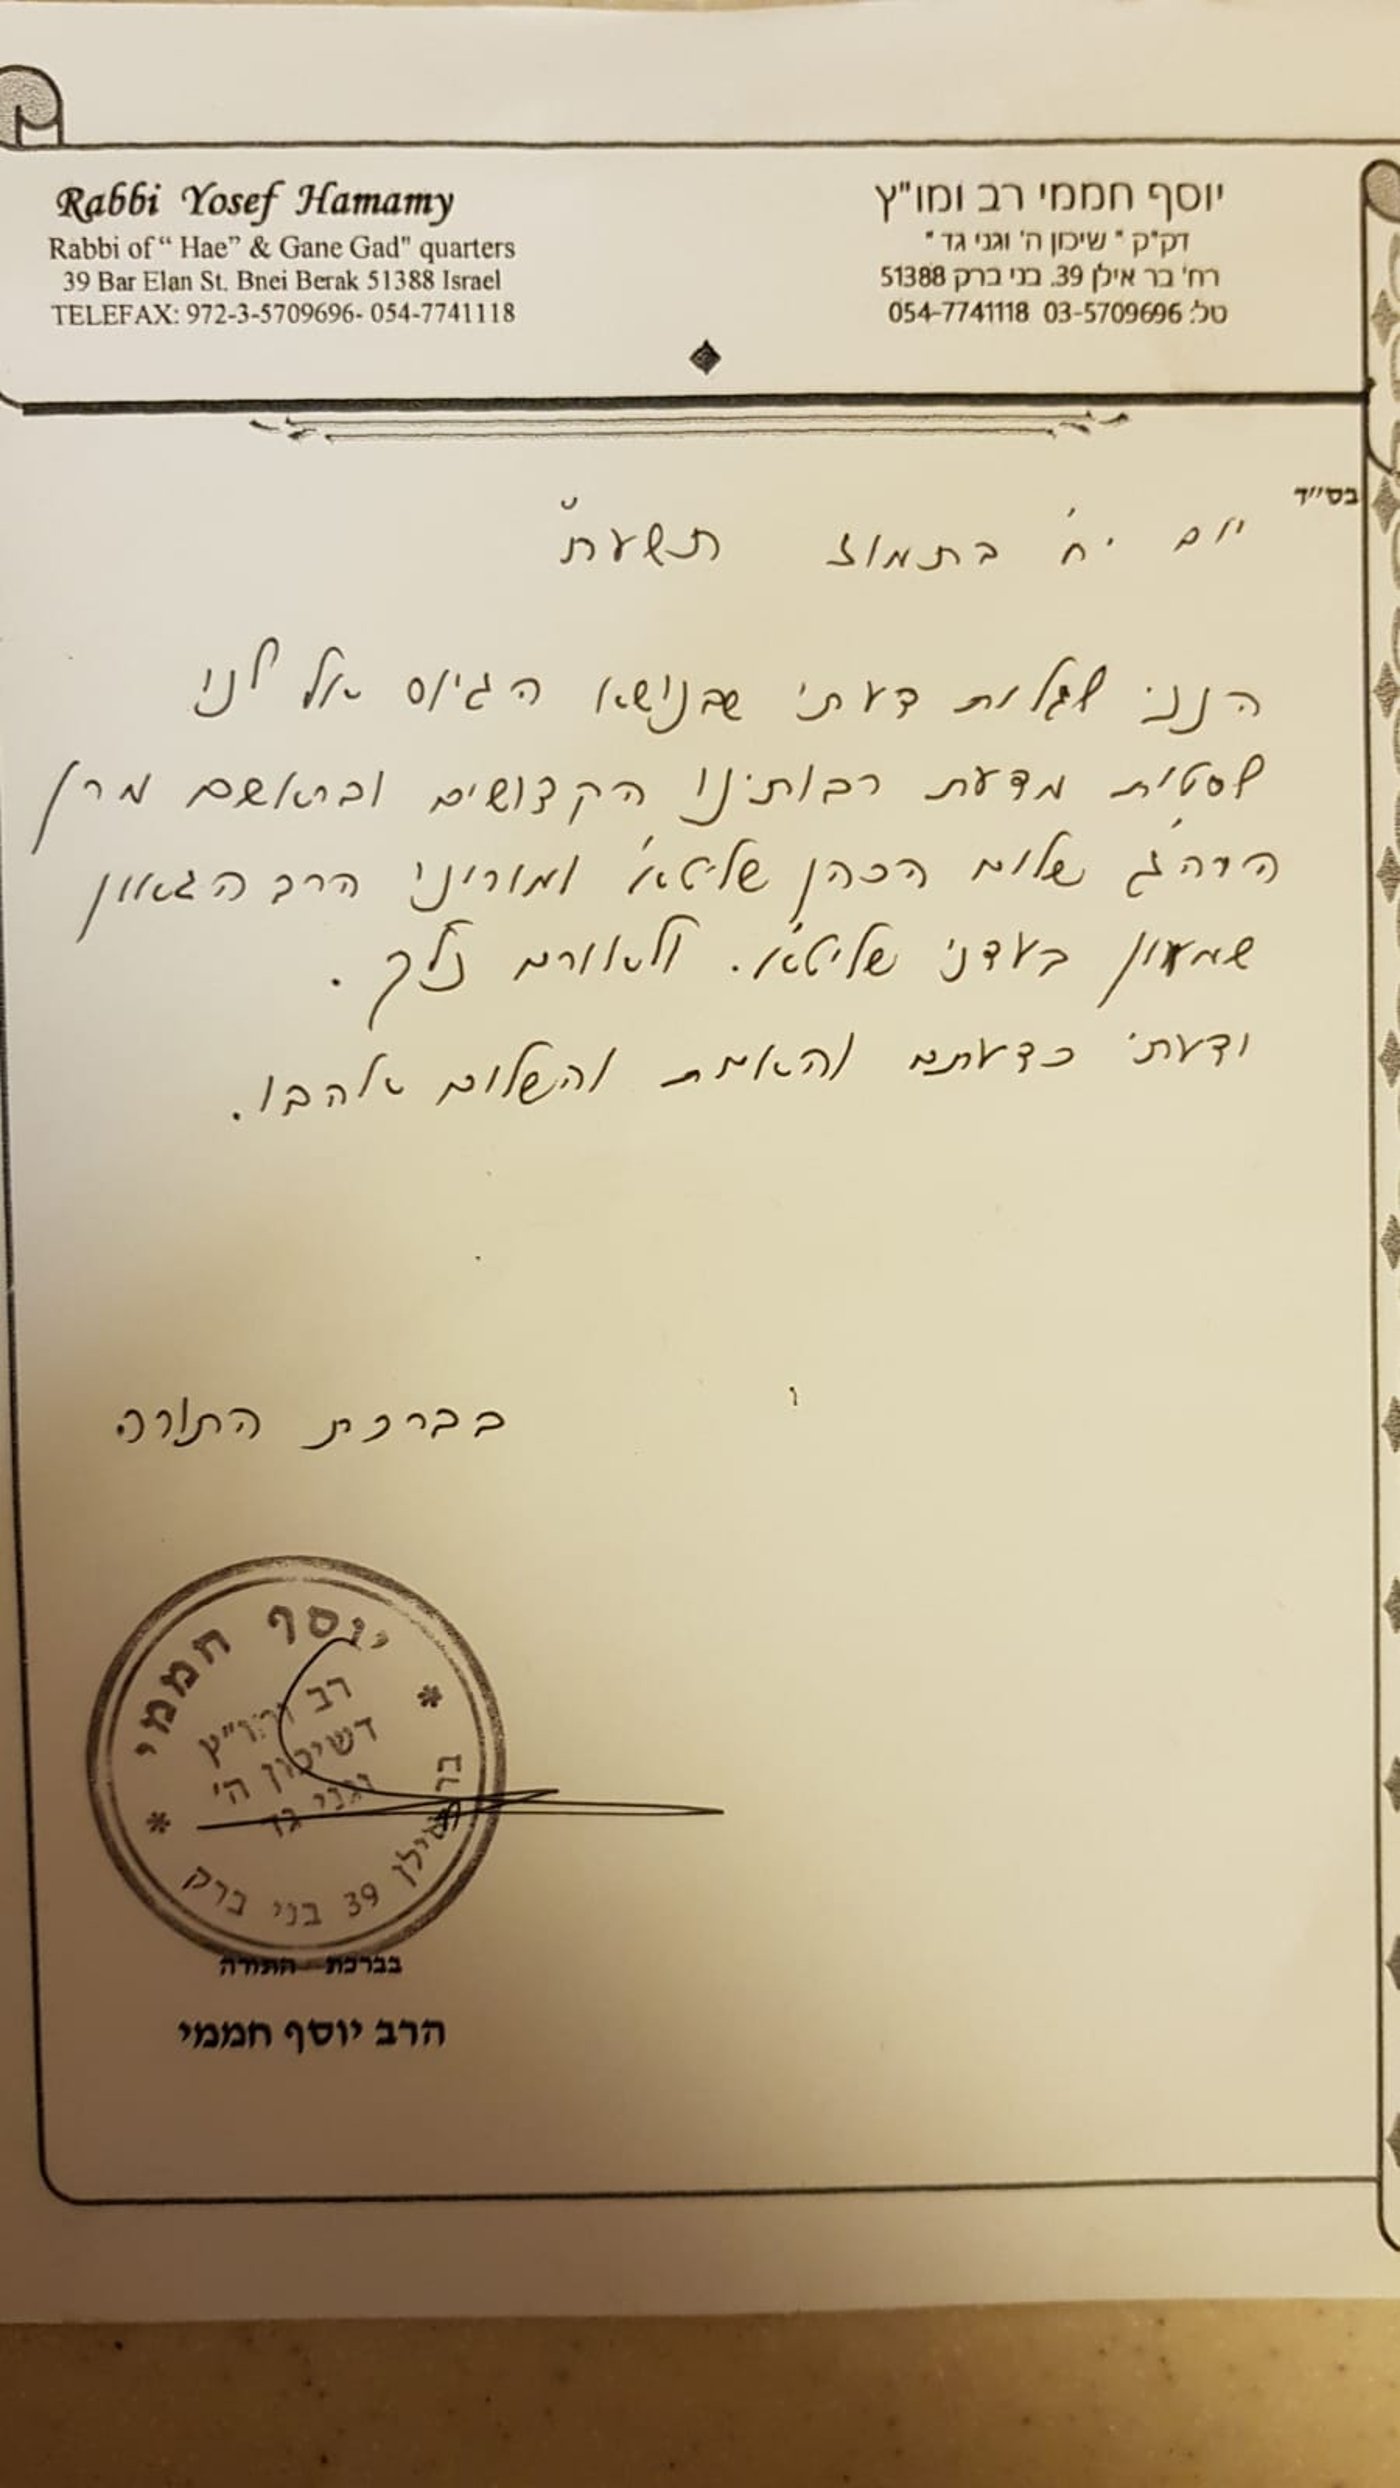 Rabbi Yosef Hamamy
Rabbi of “ Hae” & Gane Gad" quarters
39 Bar Elan St. Bnei Berak 51388 Israel
TELEFAX: 972-3-5709696- 054-7741118
יוסף חממי רב ומו"ץ
דק"ק " שיכון ה' וגני גד "
רח' בר אילן 39. בני ברק 51388
טל: 03-5709696 054-7741118
בס"ד
יום י"ח בתמוז תשע"ח
הנני לגלות דעתי שבנושא הגיוס אל לנו
לסטות מדעת רבותינו הקדושים ובראשם מרן
הרה"ג שלום הכהן שליט"א ומורינו הרב הגאון
שמעון בעדני שליט"א. ולאורם נלך.
ודעתי כדעתם והאמת והשלום אהבו.
בברכת התורה
יוסף חממי
רב ומו"ץ
דשיכון ה'
וגני גד
בר אילן 39 בני ברק
בברכת התורה
הרב יוסף חממי